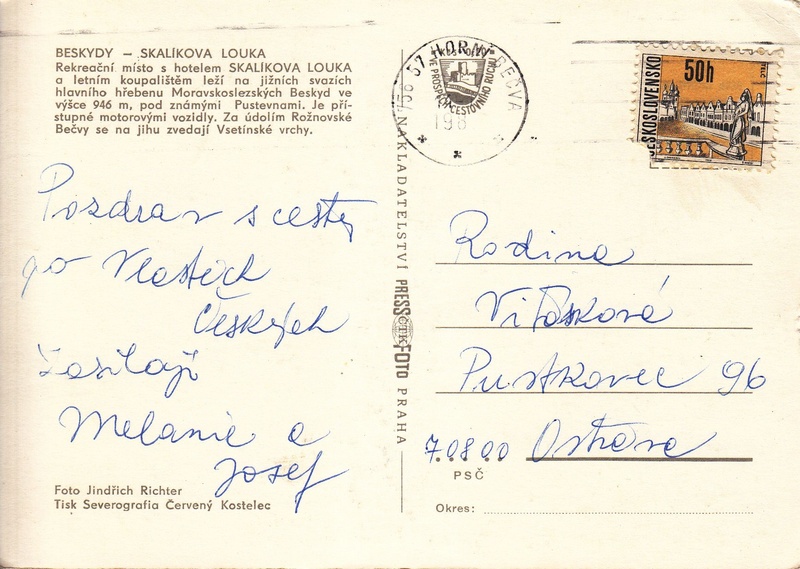 BESKYDY — SKALÍKOVA LOUKA
Rekreační místo s hotelem SKALÍKOVA LOUKA
a letním koupalištěm leží na jižních svazích
hlavního hřebenu Moravskoslezských Beskyd ve
výšce 946 m, pod známými Pustevnami. Je pří-
stupné motorovými vozidly. Za údolím Rožnovské
Bečvy se na jihu zvedají Vsetínské vrchy.
Pozdrav s cesty
po Vlastech
Českých
Zasílají
Melanie a
Josef
Foto Jindřich Richter
Tisk Severografia Červený Kostelec
NAKLADATELSTVÍ PRESSFOTO PRAHA
ČTK
756 57 HORNÍ BEČVA
CESTOVNÍHO RUCHU
198
ČESKOSLOVENSKO
50h
TELČ
Rodina
Vitásková
Pustkovec 96
70800 Ostrava
PSČ
Okres: